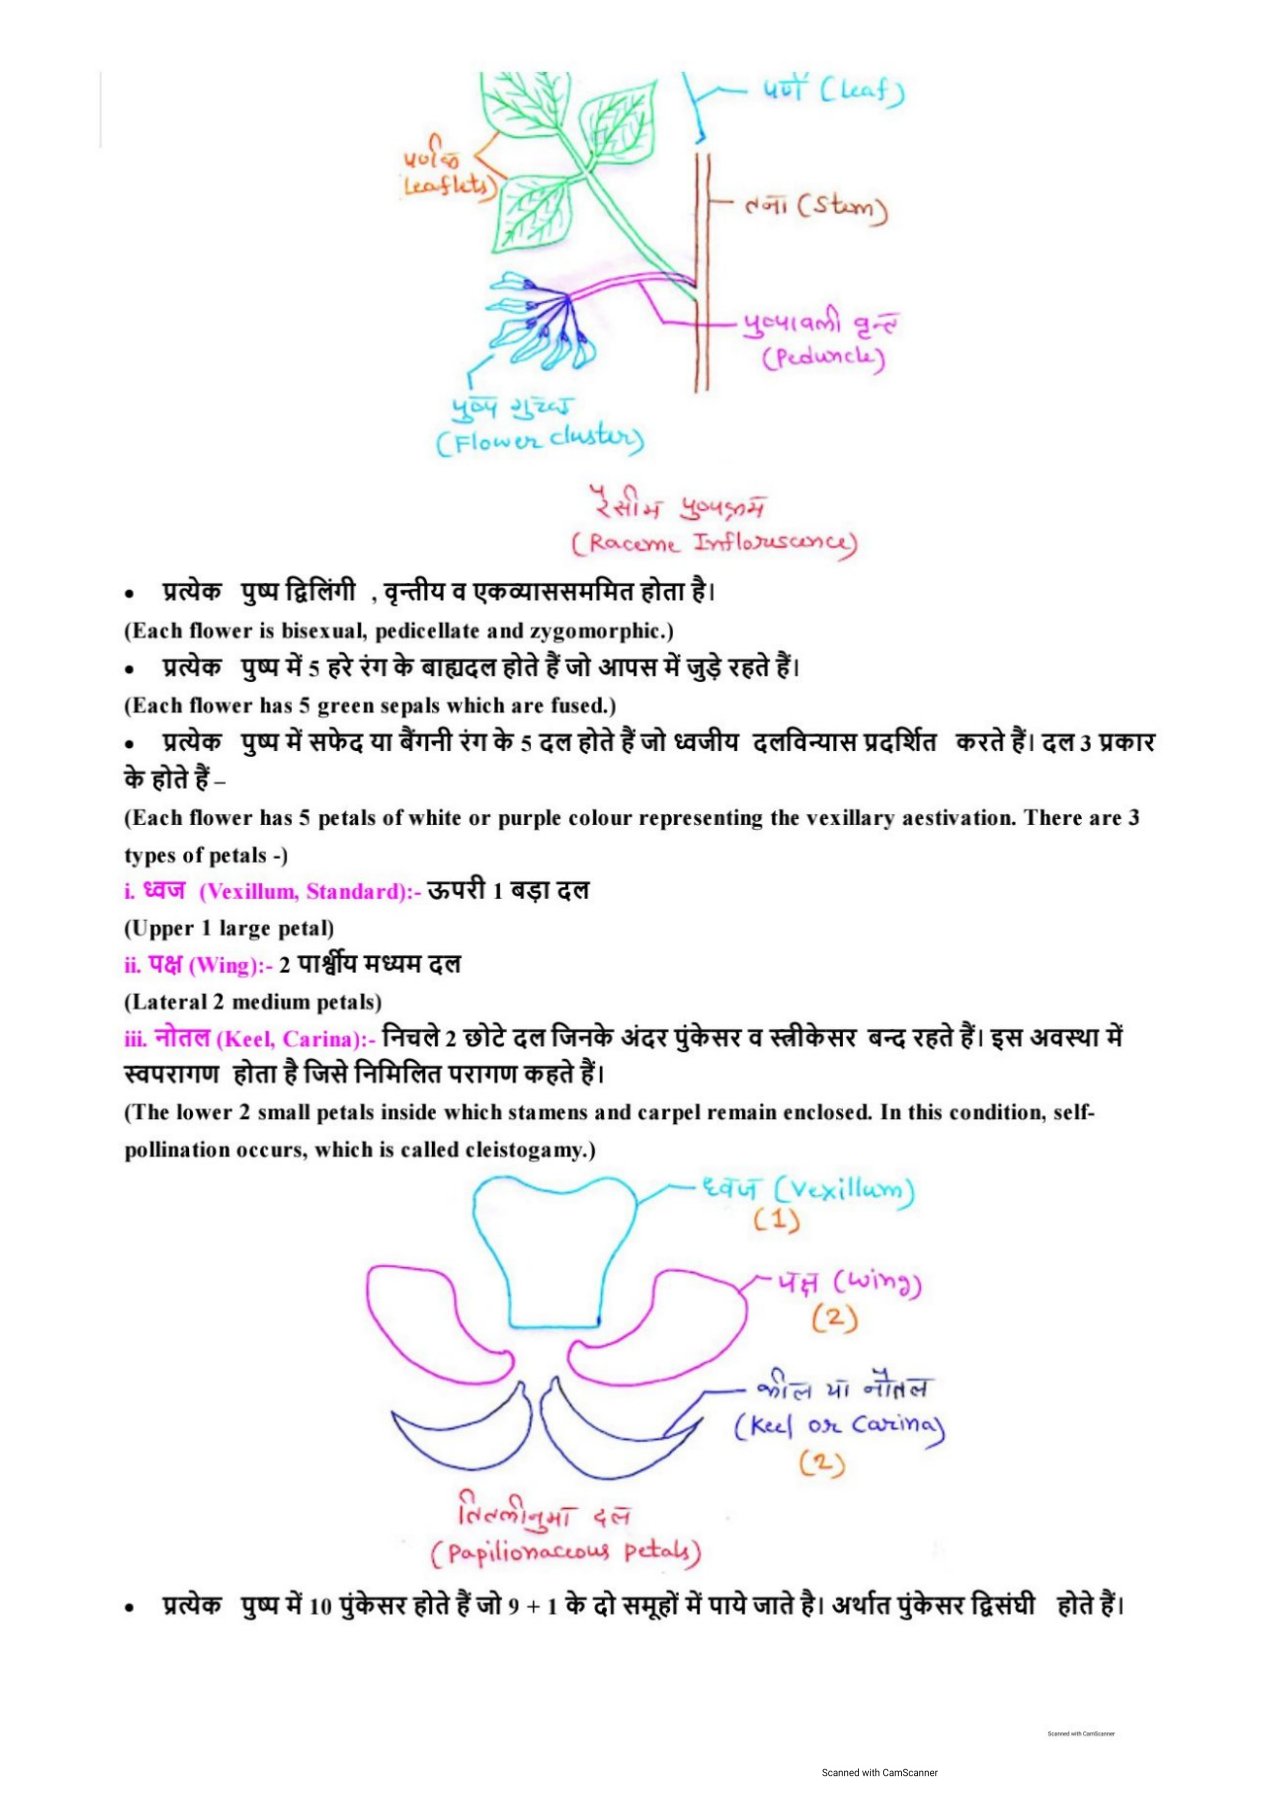 पर्ण (Leaf)
पर्णक
Leaflets)
तना (Stem)
पुष्पावली वृन्त
(Peduncle)
पुष्प गुच्छ
(Flower cluster)
रैसीम पुष्पक्रम
(Raceme Infloruscence)
• प्रत्येक पुष्प द्विलिंगी , वृन्तीय व एकव्याससममित होता है।
(Each flower is bisexual, pedicellate and zygomorphic.)
• प्रत्येक पुष्प में 5 हरे रंग के बाह्यदल होते हैं जो आपस में जुड़े रहते हैं।
(Each flower has 5 green sepals which are fused.)
• प्रत्येक पुष्प में सफेद या बैंगनी रंग के 5 दल होते हैं जो ध्वजीय दलविन्यास प्रदर्शित करते हैं। दल 3 प्रकार
के होते हैं –
(Each flower has 5 petals of white or purple colour representing the vexillary aestivation. There are 3
types of petals -)
i. ध्वज (Vexillum, Standard):- ऊपरी 1 बड़ा दल
(Upper 1 large petal)
ii. पक्ष (Wing):- 2 पार्श्वीय मध्यम दल
(Lateral 2 medium petals)
iii. नोतल (Keel, Carina):- निचले 2 छोटे दल जिनके अंदर पुंकेसर व स्त्रीकेसर बन्द रहते हैं। इस अवस्था में
स्वपरागण होता है जिसे निमिलित परागण कहते हैं।
(The lower 2 small petals inside which stamens and carpel remain enclosed. In this condition, self-
pollination occurs, which is called cleistogamy.)
ध्वज (Vexillum)
(1)
पक्ष (Wing)
(2)
कील या नौतल
(Keel or Carina)
(2)
तितलीनुमा दल
(Papilionaceous petals)
• प्रत्येक पुष्प में 10 पुंकेसर होते हैं जो 9 + 1 के दो समूहों में पाये जाते है। अर्थात पुंकेसर द्विसंघी होते हैं।
Scanned with CamScanner
Scanned with CamScanner